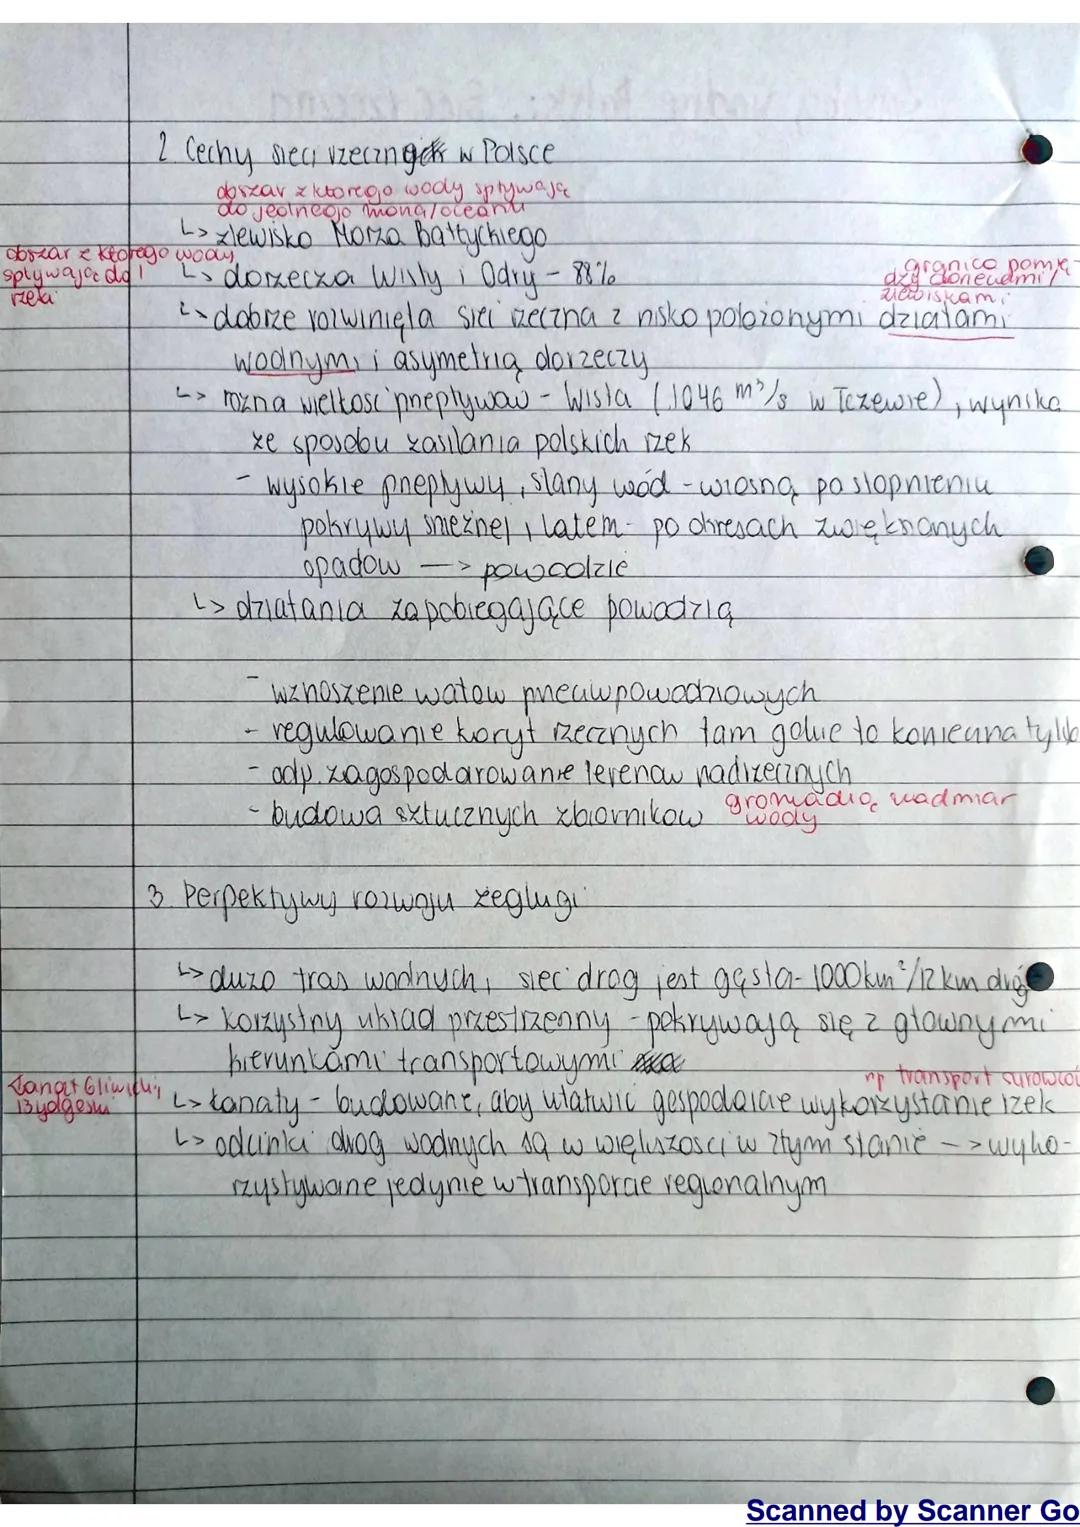 2. Cechy sieci rzecznej w Polsce
obszar z którego wody spływają
do jednego morza/oceanu
↳ zlewisko Morza Bałtyckiego
obszar z którego wody
spływają do 1
rzeki
↳ dorzecza Wisły i Odry - 88%
granica pomię-
dzy dorzeczami/
zlewiskami
↳ dobrze rozwinięta sieć rzeczna z nisko położonymi działami
wodnymi i asymetrią dorzeczy
↳ rożna wielkość przepływow - Wisła (1046 m³/s w Tczewie), wynika
ze sposobu zasilania polskich rzek
- wysokie przepływy, stany wód - wiosną, po stopnieniu
pokrywy śnieżnej i latem - po okresach zwiększonych
opadów —> powodzie
↳ działania zapobiegające powodzią
- wznoszenie wałow przeciwpowodziowych
- regulowanie koryt rzecznych tam gdzie to konieczna tylko
- odp. zagospodarowanie terenow nadrzecznych
- budowa sztucznych zbiornikow
gromadzą nadmiar
wody
3. Perpektywy rozwoju żeglugi
↳ dużo tras wodnych, sieć dróg jest gęsta - 1000km²/12 km dróg
↳ korzystny układ przestrzenny - pokrywają się z głownymi
kierunkami transportowymi
Kanał Gliwicki,
Bydgoski
np transport surowców
↳ kanały - budowane, aby ułatwić gospodarcze wykorzystanie rzek
↳ odcinki drog wodnych są w większości w złym stanie —> wyko-
rzystywane jedynie w transporcie regionalnym
Scanned by Scanner Go